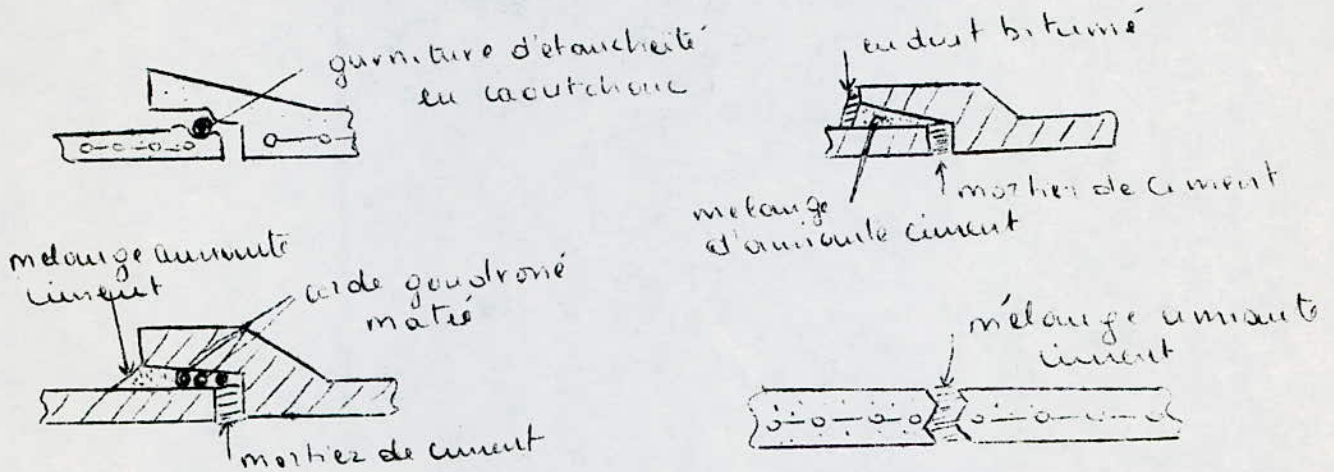 garniture d'étanchéité
en caoutchouc
enduit bitumé
mortier de ciment
mélange
d'amiante ciment
mélange amiante
ciment
corde goudronné
maté
mortier de ciment
mélange amiante
ciment